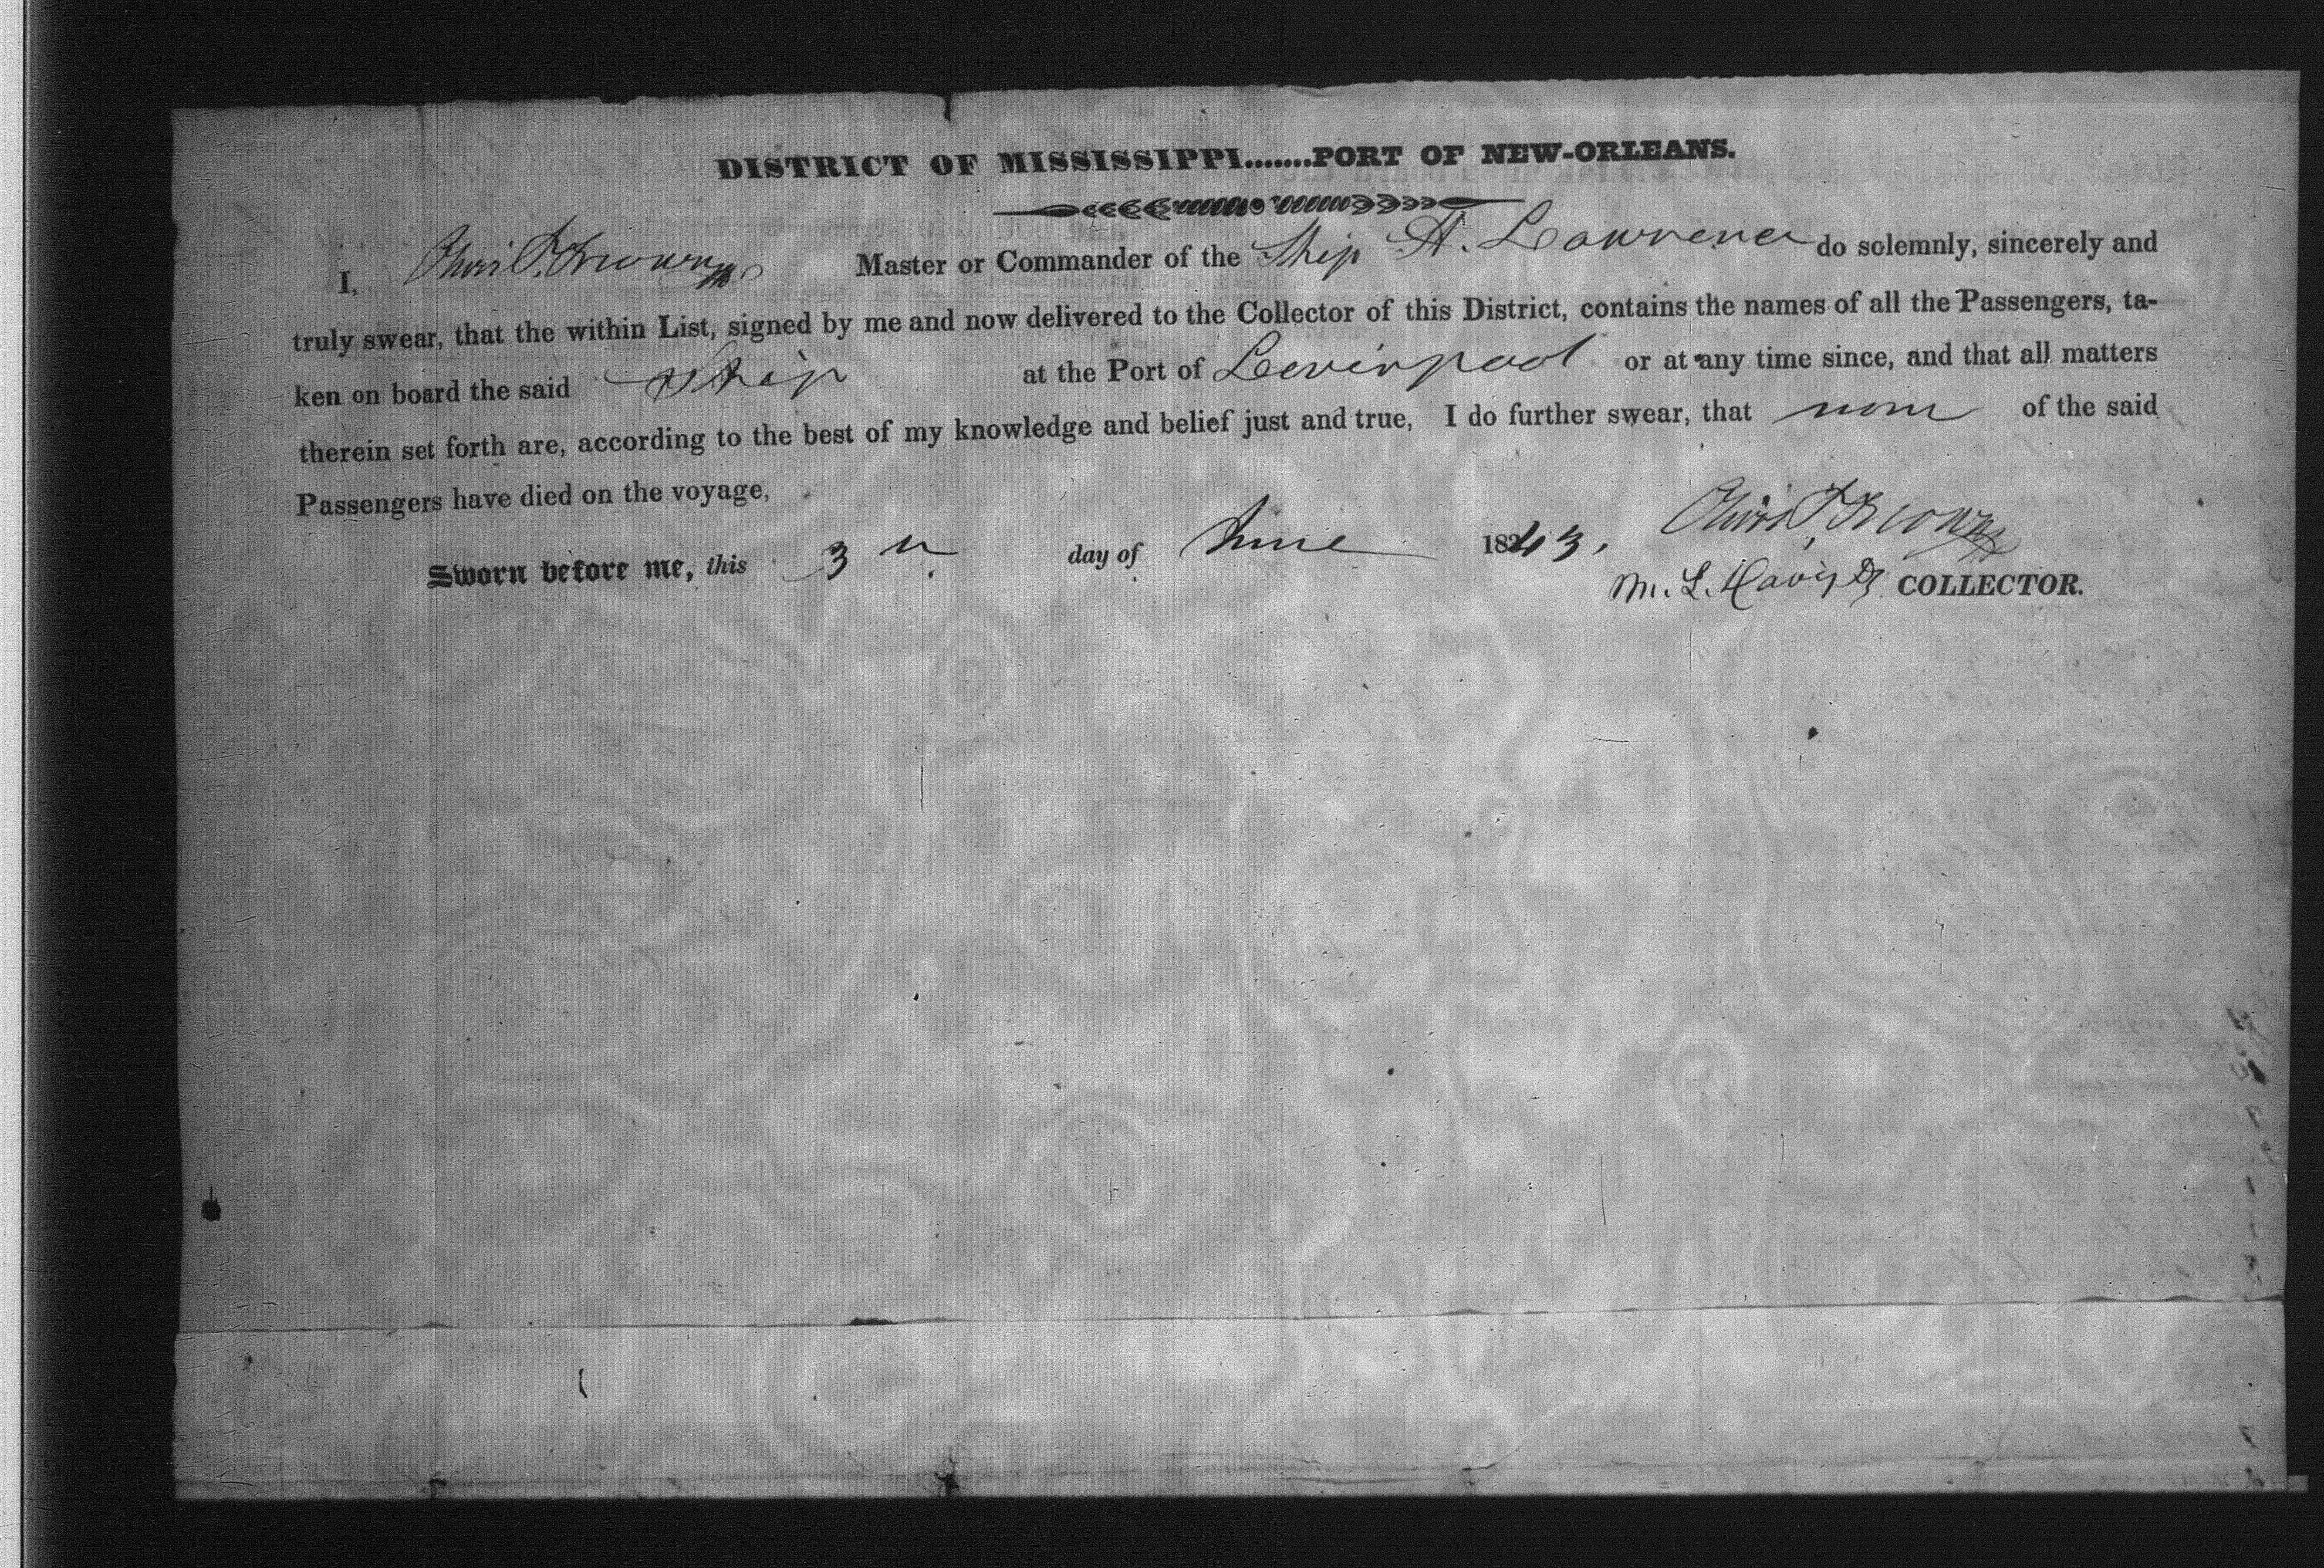 DISTRICT OF MISSISSIPPI.......PORT OF NEW-ORLEANS.
I, Master or Commander of the Ship St. Lawrence do solemnly, sincerely and
truly swear, that the within List, signed by me and now delivered to the Collector of this District, contains the names of all the Passengers, ta-
ken on board the said Ship at the Port of Leverpool or at any time since, and that all matters
therein set forth are, according to the best of my knowledge and belief just and true, I do further swear, that none of the said
Passengers have died on the voyage,
Sworn before me, this 3 day of June 1843.
COLLECTOR.